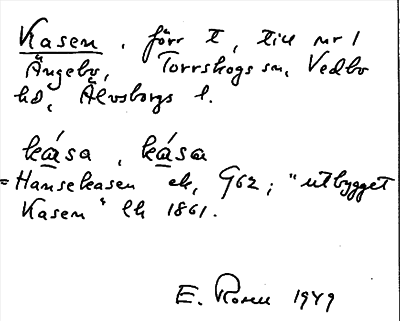 Kasen, förr t, till nr 1
Ängebo, Torrskogs sn, Vedbo
hd, Älvsborgs l.
kåsa, kåsa
= Hansekasen ek, G62; "utbygget
Kasen" lh 1861.
E. Rosell 1949